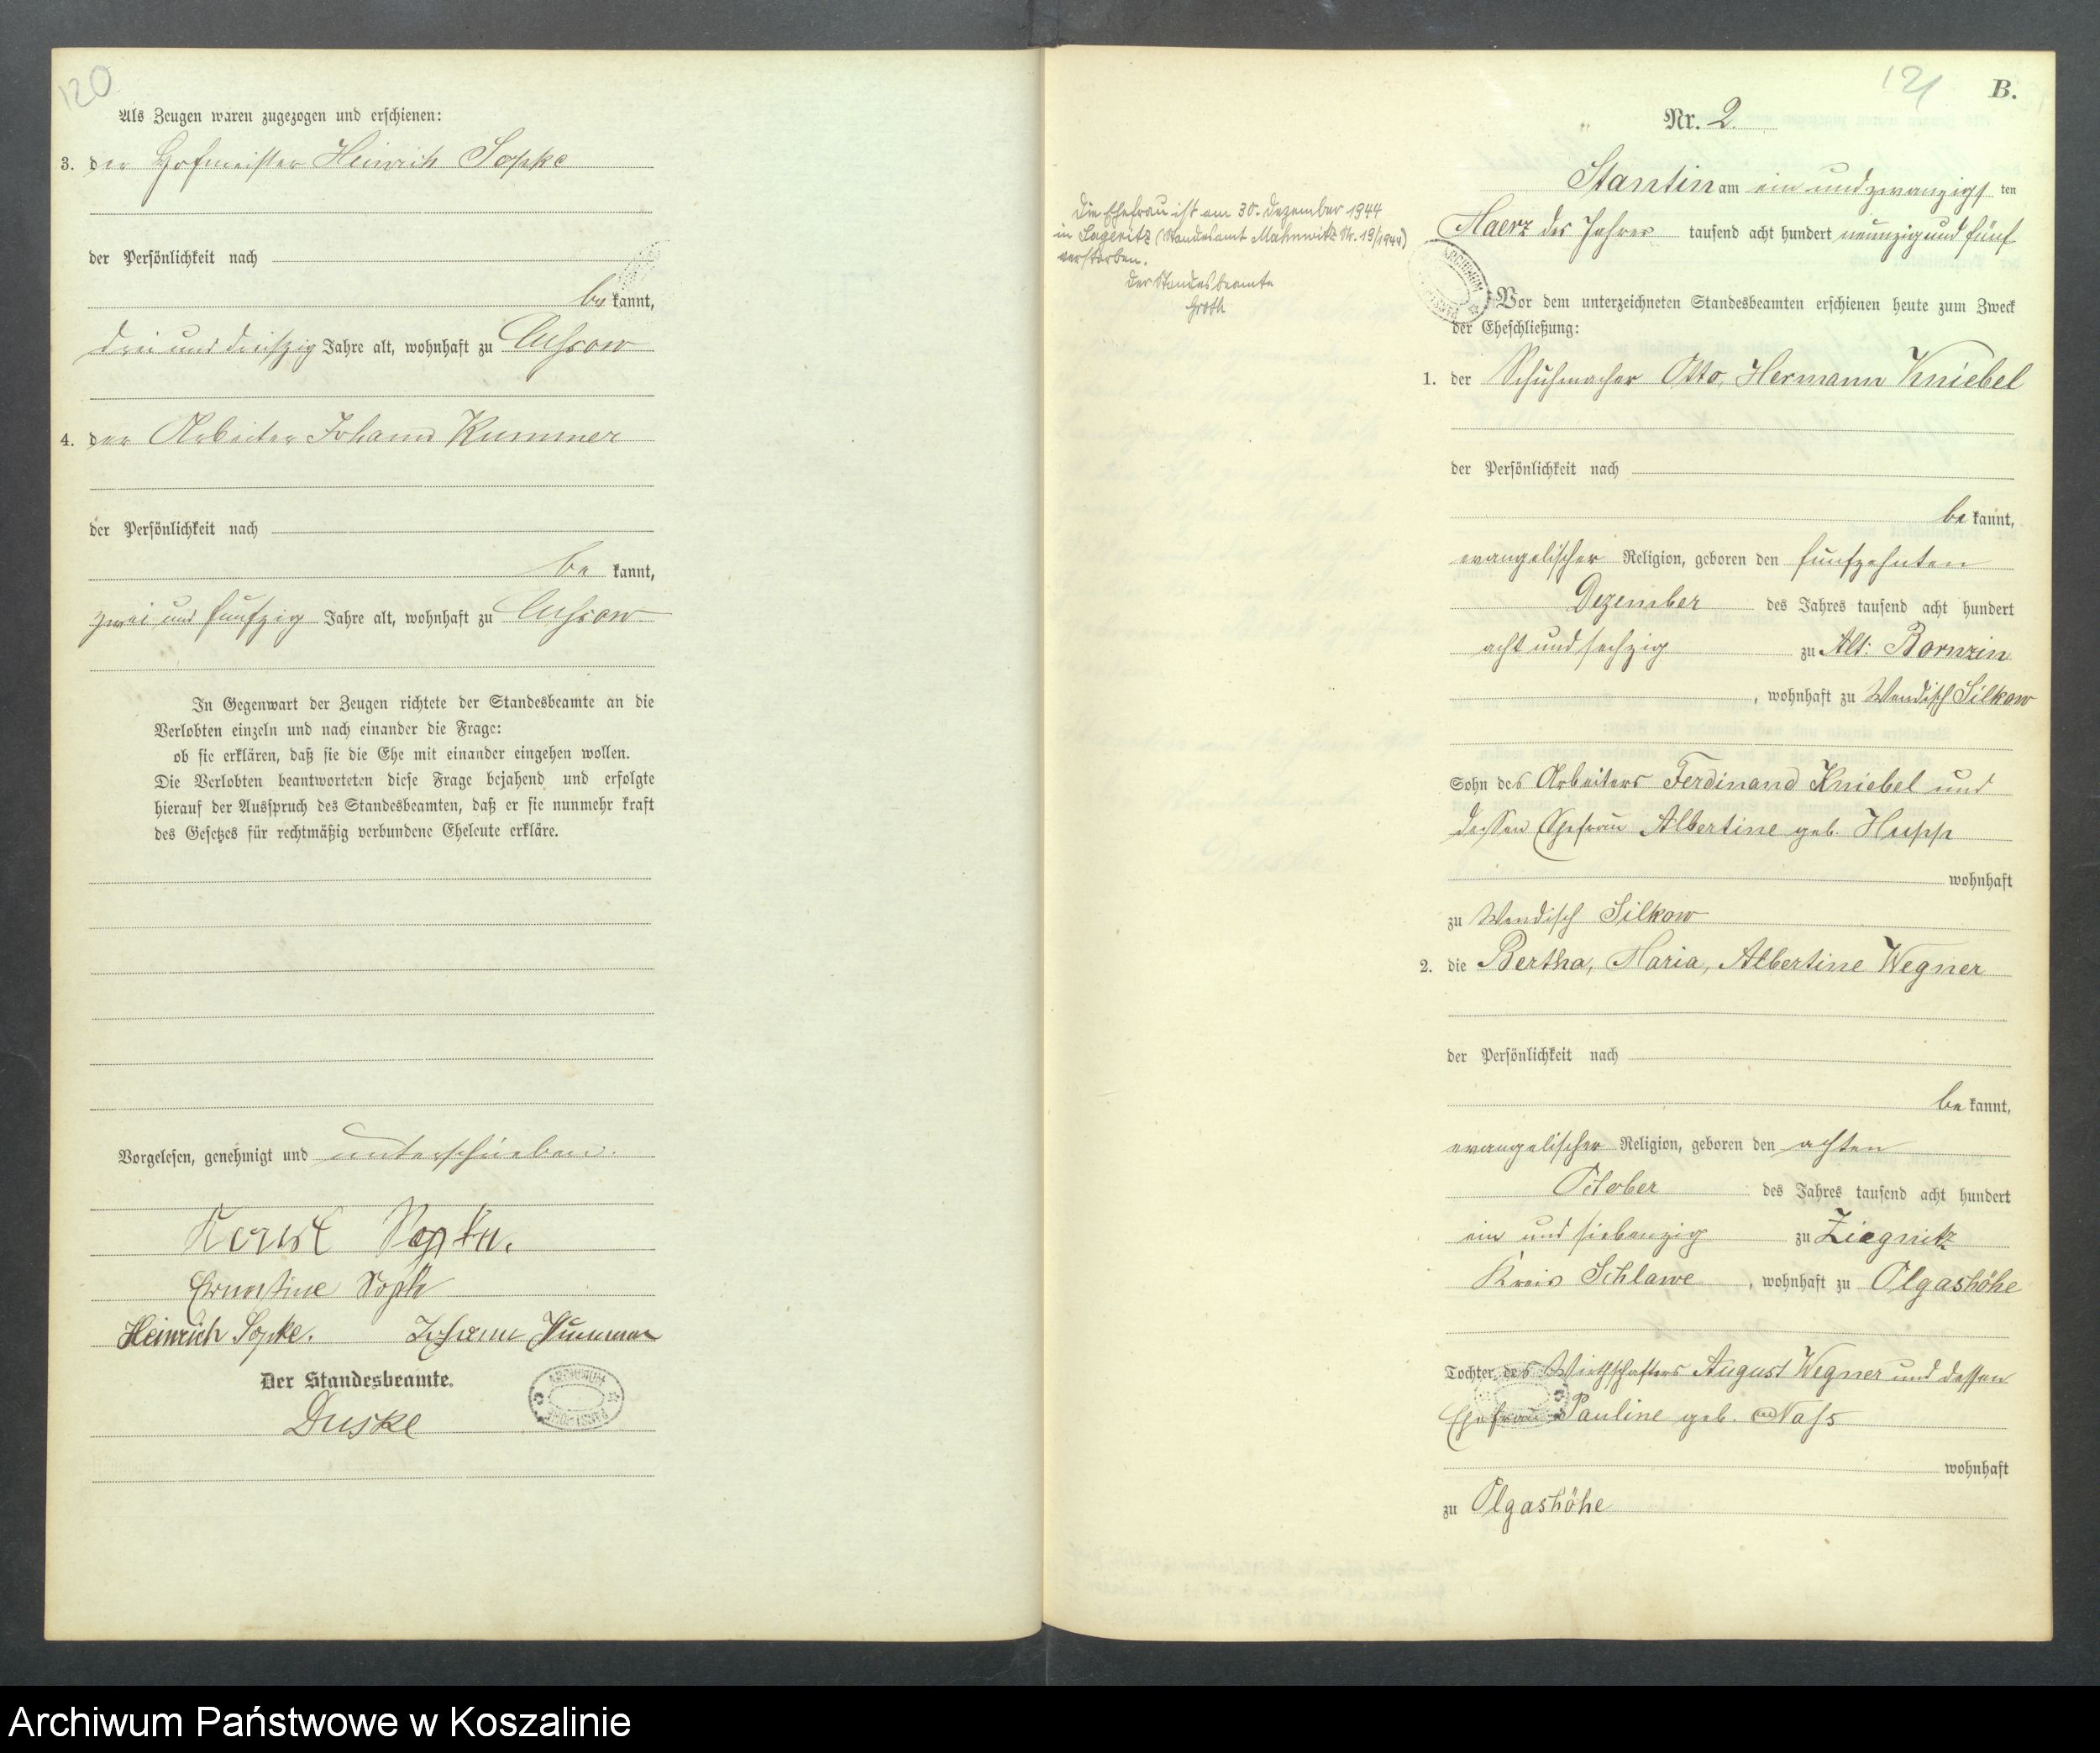 120
Als Zeugen waren zugezogen und erschienen:
3. der Hofmeister Heinrich Sopke
der Persönlichkeit nach
be kannt,
drei und dreißig Jahre alt, wohnhaft zu Cussow
4. der Arbeiter Johann Kummer
der Persönlichkeit nach
be kannt,
zwei und fünfzig Jahre alt, wohnhaft zu Cussow
In Gegenwart der Zeugen richtete der Standesbeamte an die
Verlobten einzeln und nach einander die Frage:
ob sie erklären, daß sie die Ehe mit einander eingehen wollen.
Die Verlobten beantworteten diese Frage bejahend und erfolgte
hierauf der Ausspruch des Standesbeamten, daß er sie nunmehr kraft
des Gesetzes für rechtmäßig verbundene Eheleute erkläre.
Vorgelesen, genehmigt und unterschrieben.
Sopke.
Ernestine Sopke
Heinrich Sopke. Johann Kummer
Der Standesbeamte.
Duske
121
B.
Nr. 2.
Stantin am ein und zwanzigs ten
Maerz des Jahres tausend acht hundert neunzig und fünf
Die Ehefrau ist am 30. Dezember 1944
in Lageritz (Standesamt Mahnwitz Nr. 19/1944)
verstorben.
Der Standesbeamte
Groth
Vor dem unterzeichneten Standesbeamten erschienen heute zum Zweck
der Eheschließung:
1. der Schuhmacher Otto, Hermann Kniebel
der Persönlichkeit nach
be kannt,
evangelischer Religion, geboren den fünfzehnten
Dezember des Jahres tausend acht hundert
acht und sechzig zu Alt: Bornzin
, wohnhaft zu Wendisch Silkow
Sohn des Arbeiters Ferdinand Kniebel und
dessen Ehefrau Albertine geb. Hupp
wohnhaft
zu Wendisch Silkow
2. die Bertha, Maria, Albertine Wegner
der Persönlichkeit nach
be kannt,
evangelischer Religion, geboren den achten
October des Jahres tausend acht hundert
ein und siebenzig zu Ziegnitz
Kreis Schlawe, wohnhaft zu Olgashöhe
Tochter des Wirthschafters August Wegner und dessen
Ehefrau Pauline geb.
wohnhaft
zu Olgashöhe
Archiwum Państwowe w Koszalinie